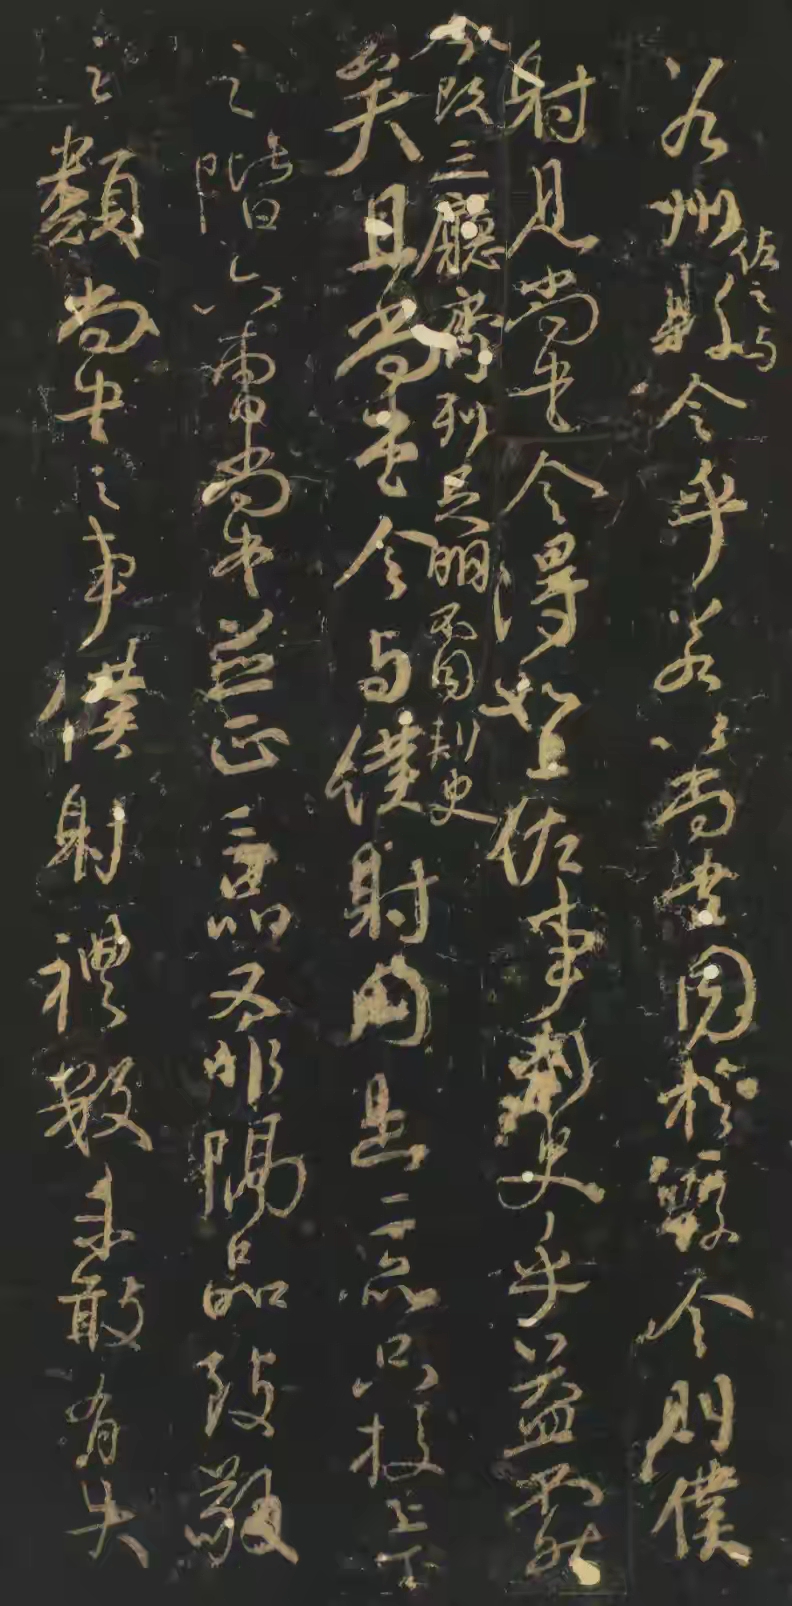 若州佐之与縣令乎若以尚書同於縣令則僕
射見尚書令得如上佐事刺史乎益不然
今既三廳齊列足明不同刺史
矣且尚書令与僕射同是二品只校上下
之階六曹尚書並正三品又非隔品致敬
之類尚書之事僕射禮數未敢有失